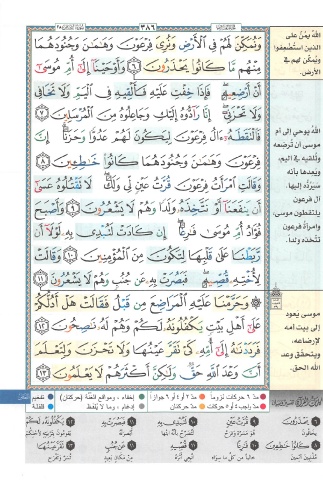 ٣٨٦
وَنُمَكِّنَ لَهُمْ فِي ٱلْأَرْضِ وَنُرِيَ فِرْعَوْنَ وَهَٰمَٰنَ وَجُنُودَهُمَا
مِنْهُم مَّا كَانُوا۟ يَحْذَرُونَ ٦ وَأَوْحَيْنَآ إِلَىٰٓ أُمِّ مُوسَىٰٓ
أَنْ أَرْضِعِيهِ ۖ فَإِذَا خِفْتِ عَلَيْهِ فَأَلْقِيهِ فِي ٱلْيَمِّ وَلَا تَخَافِي
وَلَا تَحْزَنِيٓ ۖ إِنَّا رَآدُّوهُ إِلَيْكِ وَجَاعِلُوهُ مِنَ ٱلْمُرْسَلِينَ ٧
فَٱلْتَقَطَهُۥٓ ءَالُ فِرْعَوْنَ لِيَكُونَ لَهُمْ عَدُوًّا وَحَزَنًا ۗ إِنَّ
فِرْعَوْنَ وَهَٰمَٰنَ وَجُنُودَهُمَا كَانُوا۟ خَٰطِـِٔينَ ٨
وَقَالَتِ ٱمْرَأَتُ فِرْعَوْنَ قُرَّتُ عَيْنٍ لِّي وَلَكَ ۖ لَا تَقْتُلُوهُ عَسَىٰٓ
أَن يَنفَعَنَآ أَوْ نَتَّخِذَهُۥ وَلَدًا وَهُمْ لَا يَشْعُرُونَ ٩ وَأَصْبَحَ
فُؤَادُ أُمِّ مُوسَىٰ فَٰرِغًا ۖ إِن كَادَتْ لَتُبْدِي بِهِۦ لَوْلَآ أَن
رَّبَطْنَا عَلَىٰ قَلْبِهَا لِتَكُونَ مِنَ ٱلْمُؤْمِنِينَ ١٠ وَقَالَتْ
لِأُخْتِهِۦ قُصِّيهِ ۖ فَبَصُرَتْ بِهِۦ عَن جُنُبٍ وَهُمْ لَا يَشْعُرُونَ ١١
۞ وَحَرَّمْنَا عَلَيْهِ ٱلْمَرَاضِعَ مِن قَبْلُ فَقَالَتْ هَلْ أَدُلُّكُمْ
عَلَىٰٓ أَهْلِ بَيْتٍ يَكْفُلُونَهُۥ لَكُمْ وَهُمْ لَهُۥ نَٰصِحُونَ ١٢
فَرَدَدْنَٰهُ إِلَىٰٓ أُمِّهِۦ كَيْ تَقَرَّ عَيْنُهَا وَلَا تَحْزَنَ وَلِتَعْلَمَ
أَنَّ وَعْدَ ٱللَّهِ حَقٌّ وَلَٰكِنَّ أَكْثَرَهُمْ لَا يَعْلَمُونَ ١٣
الله يمن على
الذين استضعفوا
ويمكن لهم في
الأرض.
الله يوحي إلى أم
موسى أن ترضعه
وتلقيه في اليم،
ويعدها بأنه
سيرده إليها.
آل فرعون
يلتقطون موسى،
وامرأة فرعون
تتخذه ولدا.
موسى يعود
إلى بيت أمه
لإرضاعه،
ويتحقق وعد
الله الحق.
مد ٦ حركات لزوما
مد ٢ أو ٤ أو ٦ جوازا
إخفاء، ومواقع الغنة (حركتان)
تفخيم
مد واجب ٤ أو ٥ حركات
مد حركتان
إدغام، وما لا يلفظ
قلقلة